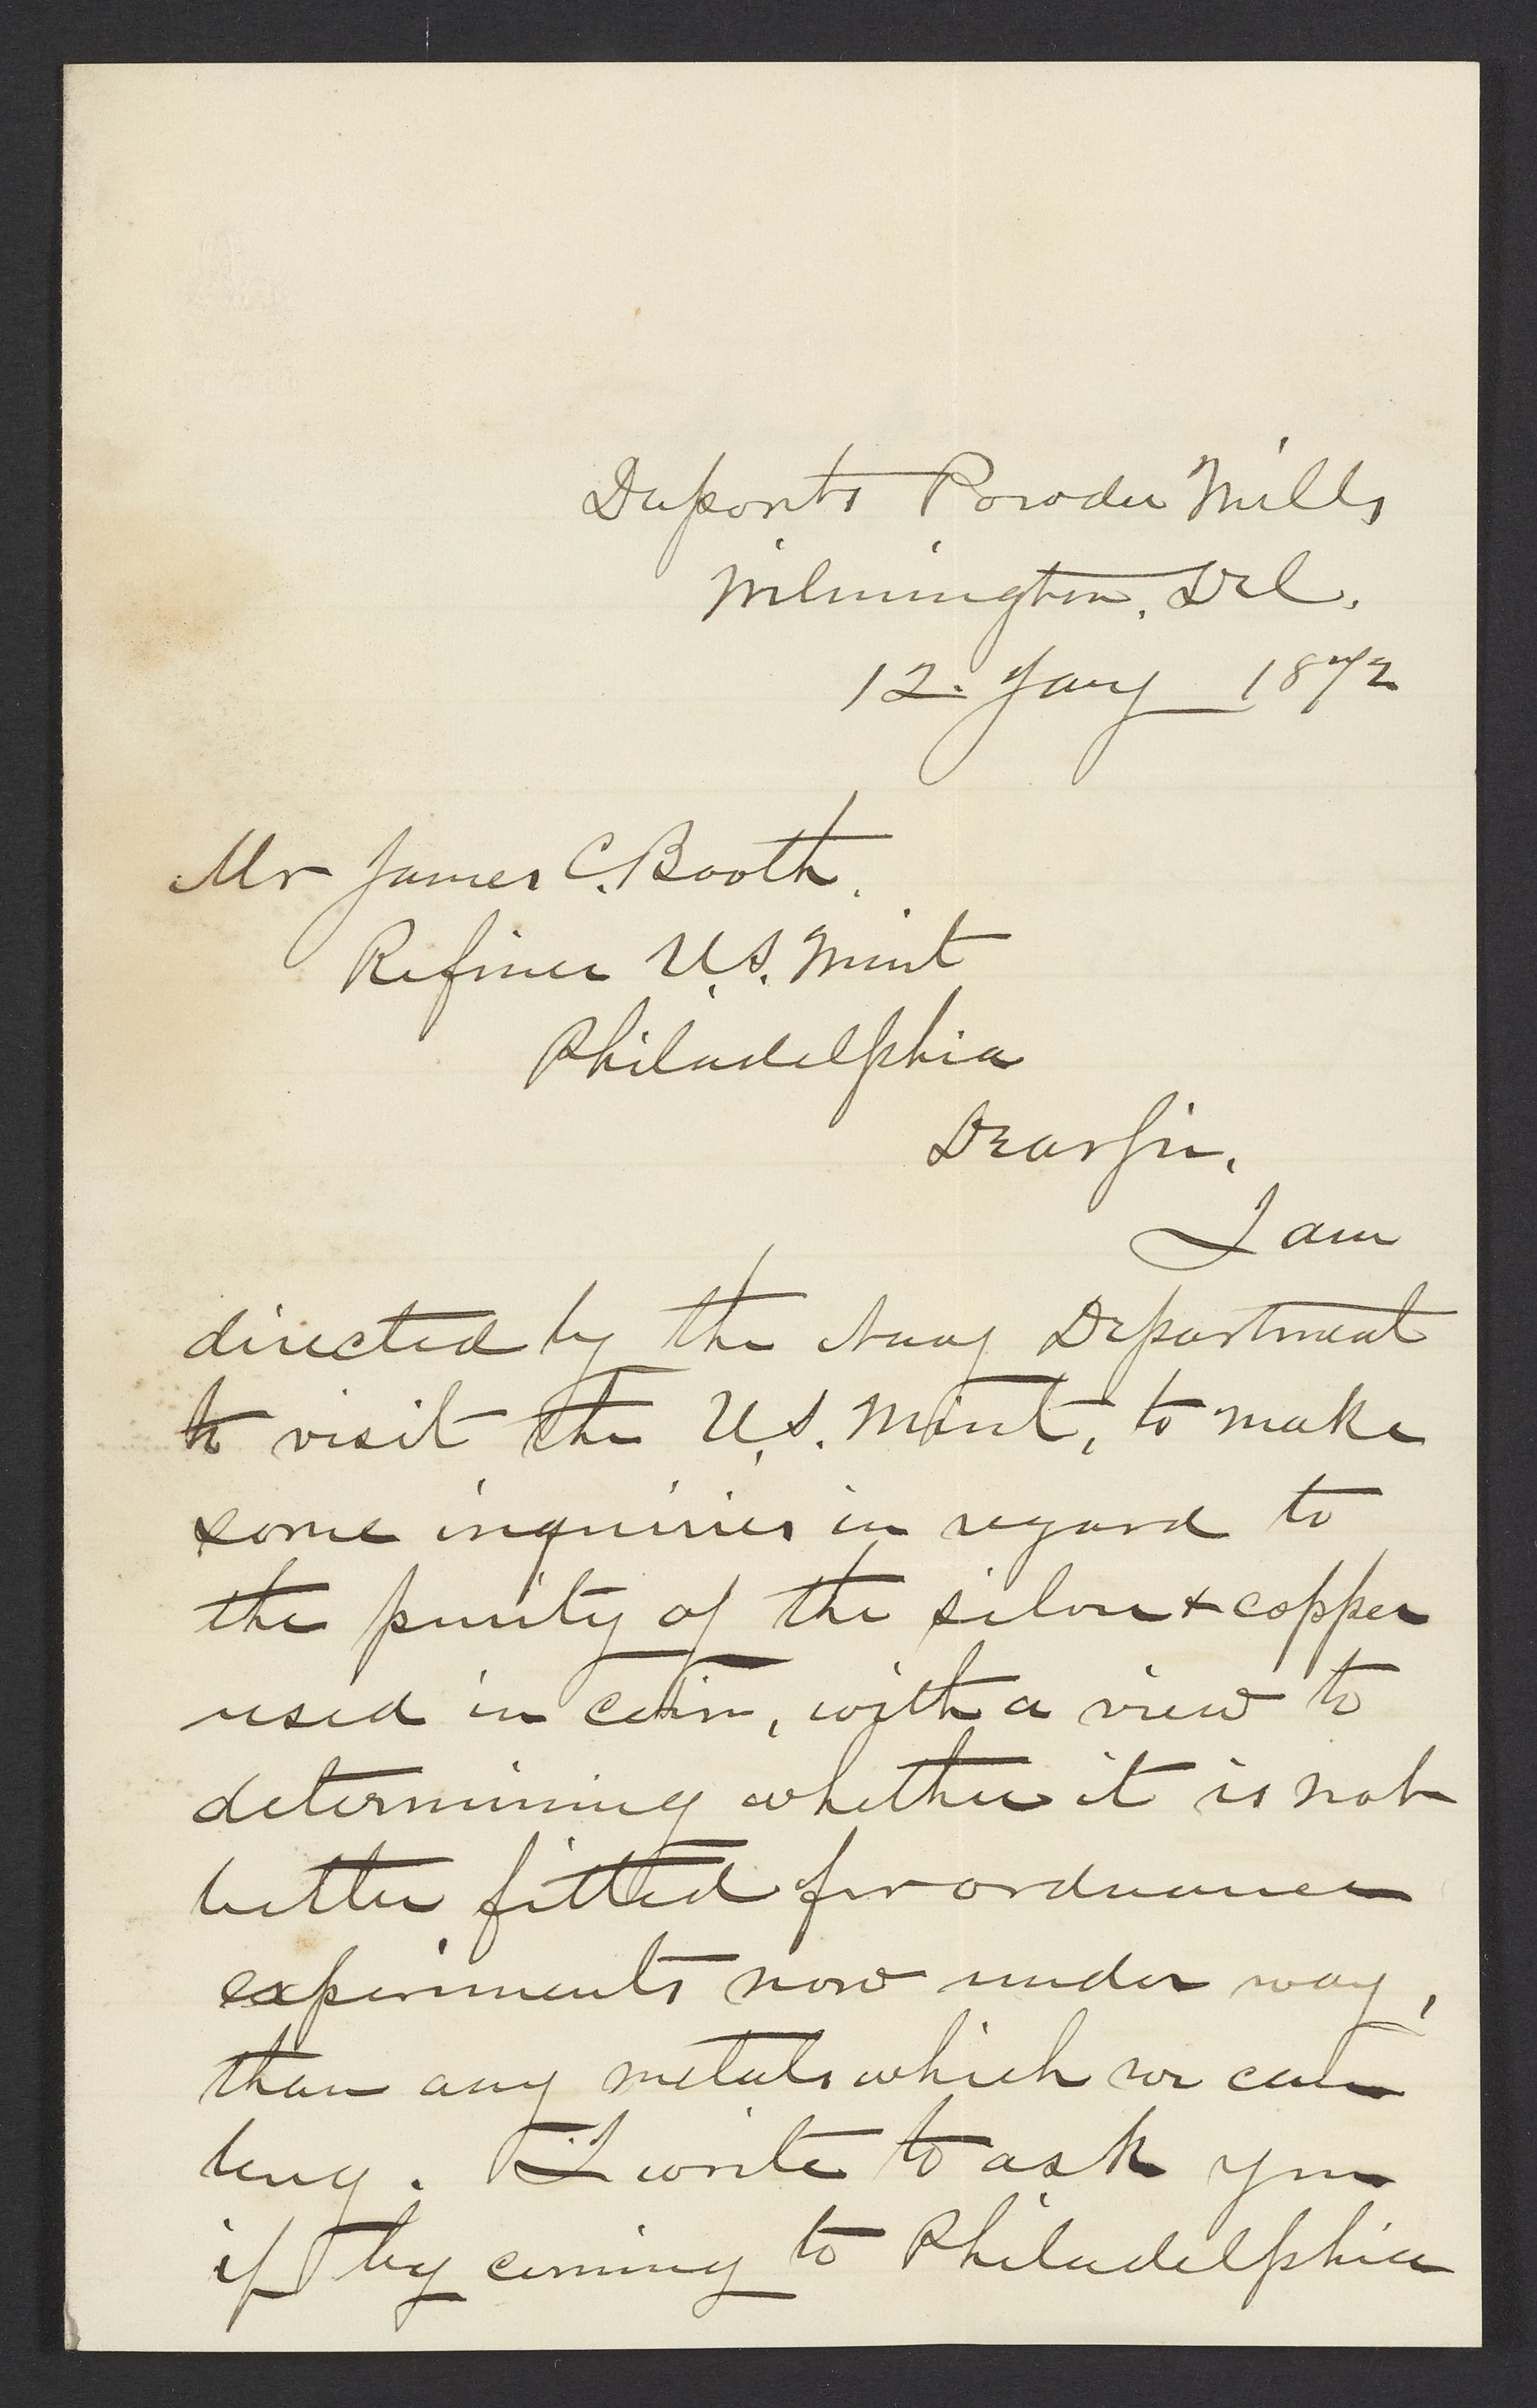 Duponts Powder Mills
Wilmington, Del.
12. Jany 1872
Mr James C. Booth.
Refiner U.S. Mint
Philadelphia
Dear Sir,
I am
directed by the Navy Department
to visit the U.S. Mint, to make
some inquiries in regard to
the purity of the silver & copper
used in coin, with a view to
determining whether it is not
better fitted for ordnance
experiments now under way,
than any metals which we can
buy. I write to ask you
if by coming to Philadelphia